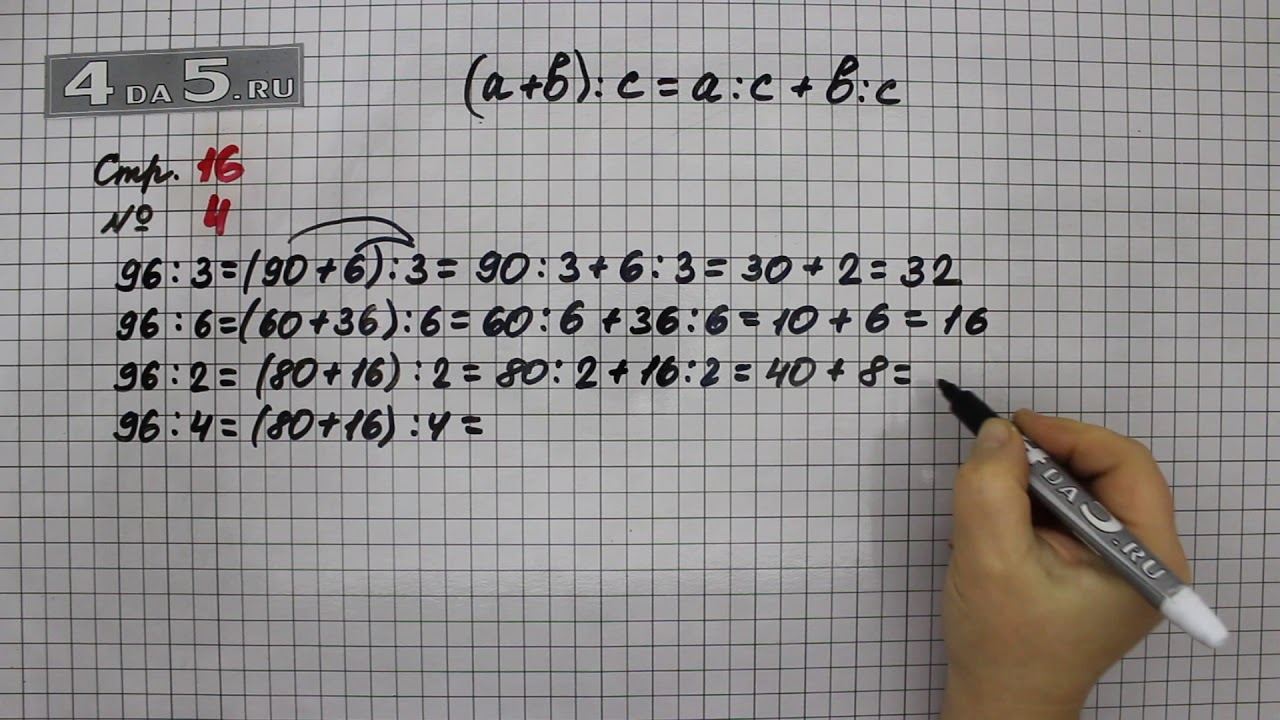 4 DA 5.RU
(а+в):с=а:с+в:с
Стр. 16
№ 4
96:3=(90+6):3=90:3+6:3=30+2=32
96:6=(60+36):6=60:6+36:6=10+6=16
96:2=(80+16):2=80:2+16:2=40+8=
96:4=(80+16):4=
4 DA 5.RU